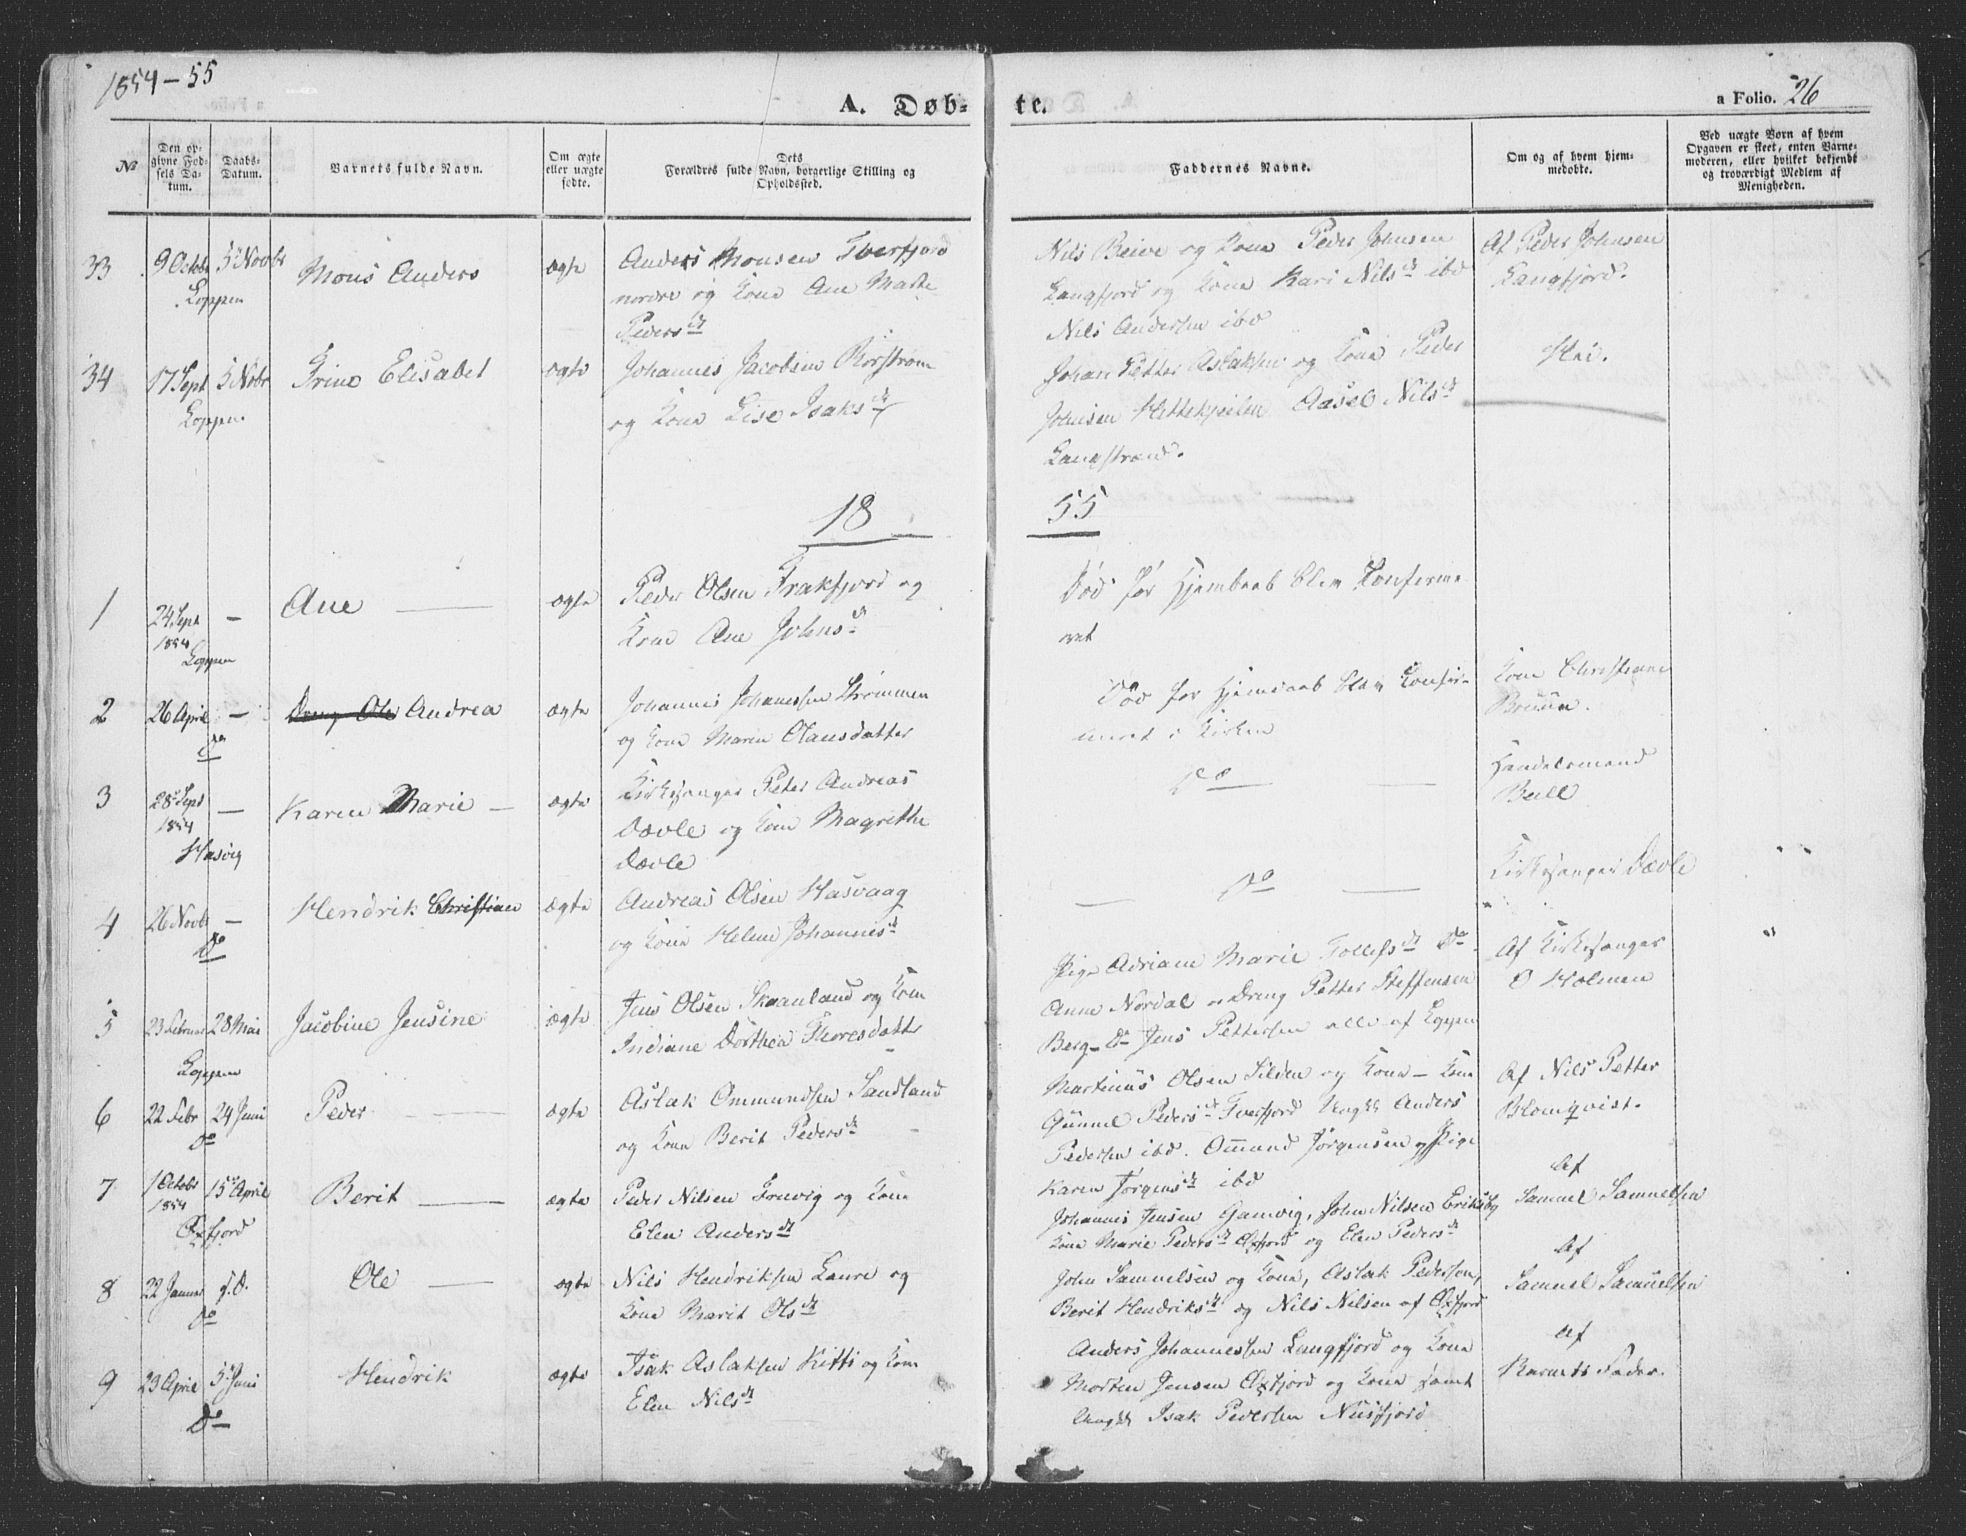 1854-55
A. Døb-
te.
a Folio. 26
No
Den op-
givne Fød-
sels Da-
tum.
Daabs-
Datum.
Barnets fulde Navn.
Om ægte
eller uægte
fødte.
Dets
Forældres fulde Navn, borgerlige Stilling og
Opholdssted.
Faddernes Navne.
Om og af hvem hjem-
medøbte.
Ved uægte Børn af hvem
Opgaven er skeet, enten Barne-
moderen, eller hvilket bekjendt
og troværdigt Medlem af
Menigheden.
33 9 Octobr 5 Novbr Mons Anders ægte Anders Monsen Tverfjord
Loppen
nordre og Kone Ane Marte
Peders dt
Nils Beive og Kone Peder Johnsen
Langfjord og Kone Kari Nils dt ibd
Nils Andersen ibd
Af Peder Johnsen
Langfjord.
34 17 Sept 5 Nobr Trine Elisabet ægte Johannes Jacobsen
Loppen
og Kone Lise Isaks dt
Johan Petter Aslaksen og Kone Peder
Johnsen Aasel Nils dt
Langstrand.
18
55
1 24 Sept 1854 - Ane ægte Peder Olsen Frakfjord og
Loppen
Kone Ane Johns dt
Død før Hjemdaab blev Konferme
ret
2 26 April - Andrea ægte Johannes Johannessen Strømmen
Do
og Kone Maren Olausdatter
Død før Hjemdaab blev Konfir-
meret i Kirken
Kone Christiane
Bruun.
3 28 Sept 1854 - Karen Marie - ægte Kirkesanger Peter Andreas
Hasvig
Dævle og Kone Magrethe
Dævle
Do
Handelsmand
Bull
4 26 Novbr - Hendrik Christian ægte Andreas Olsen Hasvaag
Do
og Kone Helene Johannes dt
Do
Kirkesanger Dævle
5 23 Februar 28 Mai Jacobine Jensine ægte Jens Olsen Skaanland og Kone
Loppen
Indiane Dorthea Thoresdatter
Pige Adriane Marie Tollefs dt Do
Anne Nordal - Dreng Petter Steffensen
Berg - Do Jens Pettersen alle af Loppen
Af Kirkesanger
O Holmen
6 22 Febr 24 Juni Peder ægte Aslak Ommundsen Sandland
Do
og Kone Berit Peders dt
Martinus Olsen Silden og Kone - Kone
Gunnel Peders dt Tverfjord Ungk Anders
Pedersen ibd. Ommund Jørgensen og Pige
Karen Jørgens dt ibd
Af Nils Petter
Blomqvist.
7 1 Octobr 1854 15 April Berit ægte Peder Nilsen og Kone
Øxfjord
Elen Anders dt
Johannes Jensen Gamvig, John Nilsen Eriksby
Kone Marie Peders dt Øxfjord og Elen Peders dt
Af
Samuel Samuelsen
8 22 Januar s.D. Ole ægte Nils Hendriksen Laure og
Do
Kone Marit Ols dt
John Samuelsen og Kone, Aslak Pedersen,
Berit Hendriks dt og Nils Nilsen af Øxfjord
Af
Samuel Samuelsen
9 23 April 5 Juni Hendrik ægte Isak Aslaksen Kitti og Kone
Do
Elen Nils dt
Anders Johannessen Langfjord og Kone
Morten Jensen Øxfjord og Kone samt
Ungk Isak Pedersen Nusfjord
Af
Barnets Fader.